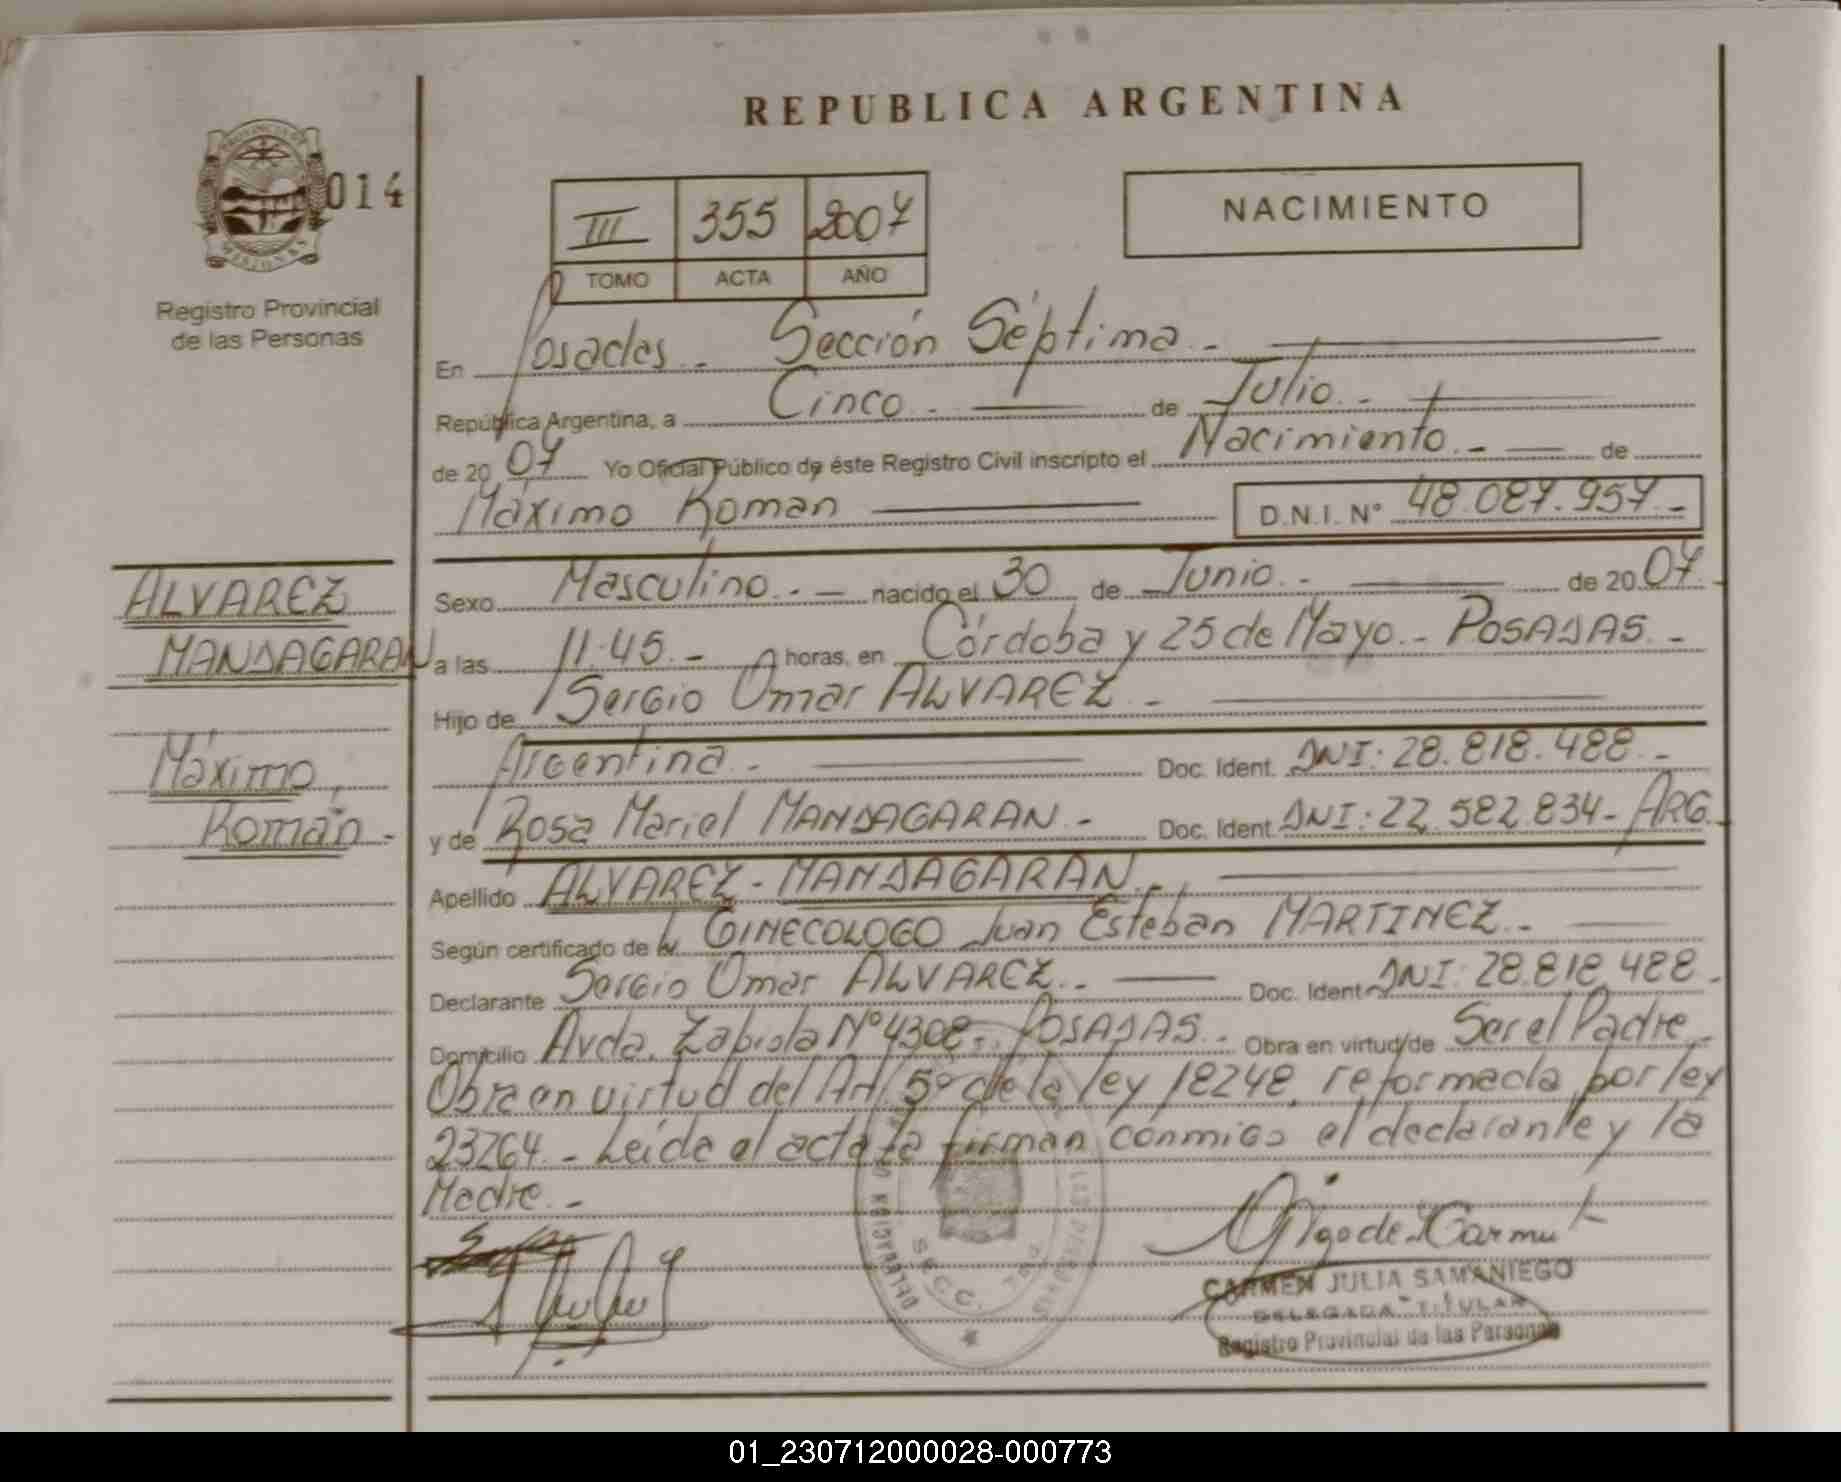 REPUBLICA ARGENTINA
PROVINCIA DE
MISIONES
014
Registro Provincial
de las Personas
III 355 2007
TOMO ACTA AÑO
NACIMIENTO
En Posadas.- Sección Séptima.-
República Argentina, a Cinco.- de Julio.-
de 20 07 Yo Oficial Público de éste Registro Civil inscripto el Nacimiento.- de
Máximo Roman D.N.I. Nº 48.087.957.-
ALVAREZ
MANDAGARAN
Máximo,
Román.-
Sexo Masculino.- nacido el 30 de Junio.- de 20 07.-
a las 11.45.- horas, en Córdoba y 25 de Mayo.- POSADAS.-
Hijo de Sergio Omar ALVAREZ.-
Argentina.- Doc. Ident. DNI: 28.818.488.-
y de Rosa Mariel MANDAGARAN.- Doc. Ident. DNI: 22.582.834- ARG.-
Apellido ALVAREZ - MANDAGARAN.-
Según certificado de GINECOLOGO Juan Esteban MARTINEZ.-
Declarante Sergio Omar ALVAREZ.- Doc. Ident. DNI: 28.818.488.
Domicilio Avda. Zapiola Nº 4308.- POSADAS.- Obra en virtud de Ser el Padre.-
Obra en virtud del Art. 5º de la ley 18248, reformada por ley
23264.- Leída el acta la firman conmigo el declarante y la
Madre.-
SECC. 7ma
CARMEN JULIA SAMANIEGO
DELEGADA TITULAR
Registro Provincial de las Personas
01_230712000028-000773